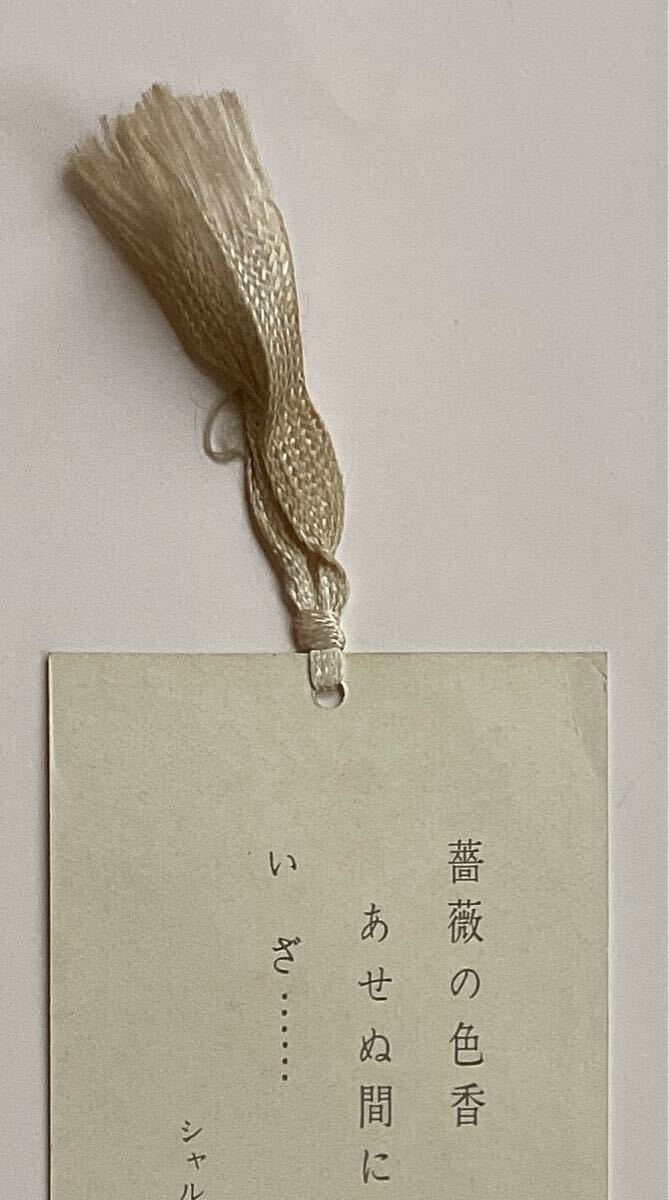 薔薇の色香
あせぬ間に
いざ……
シャル